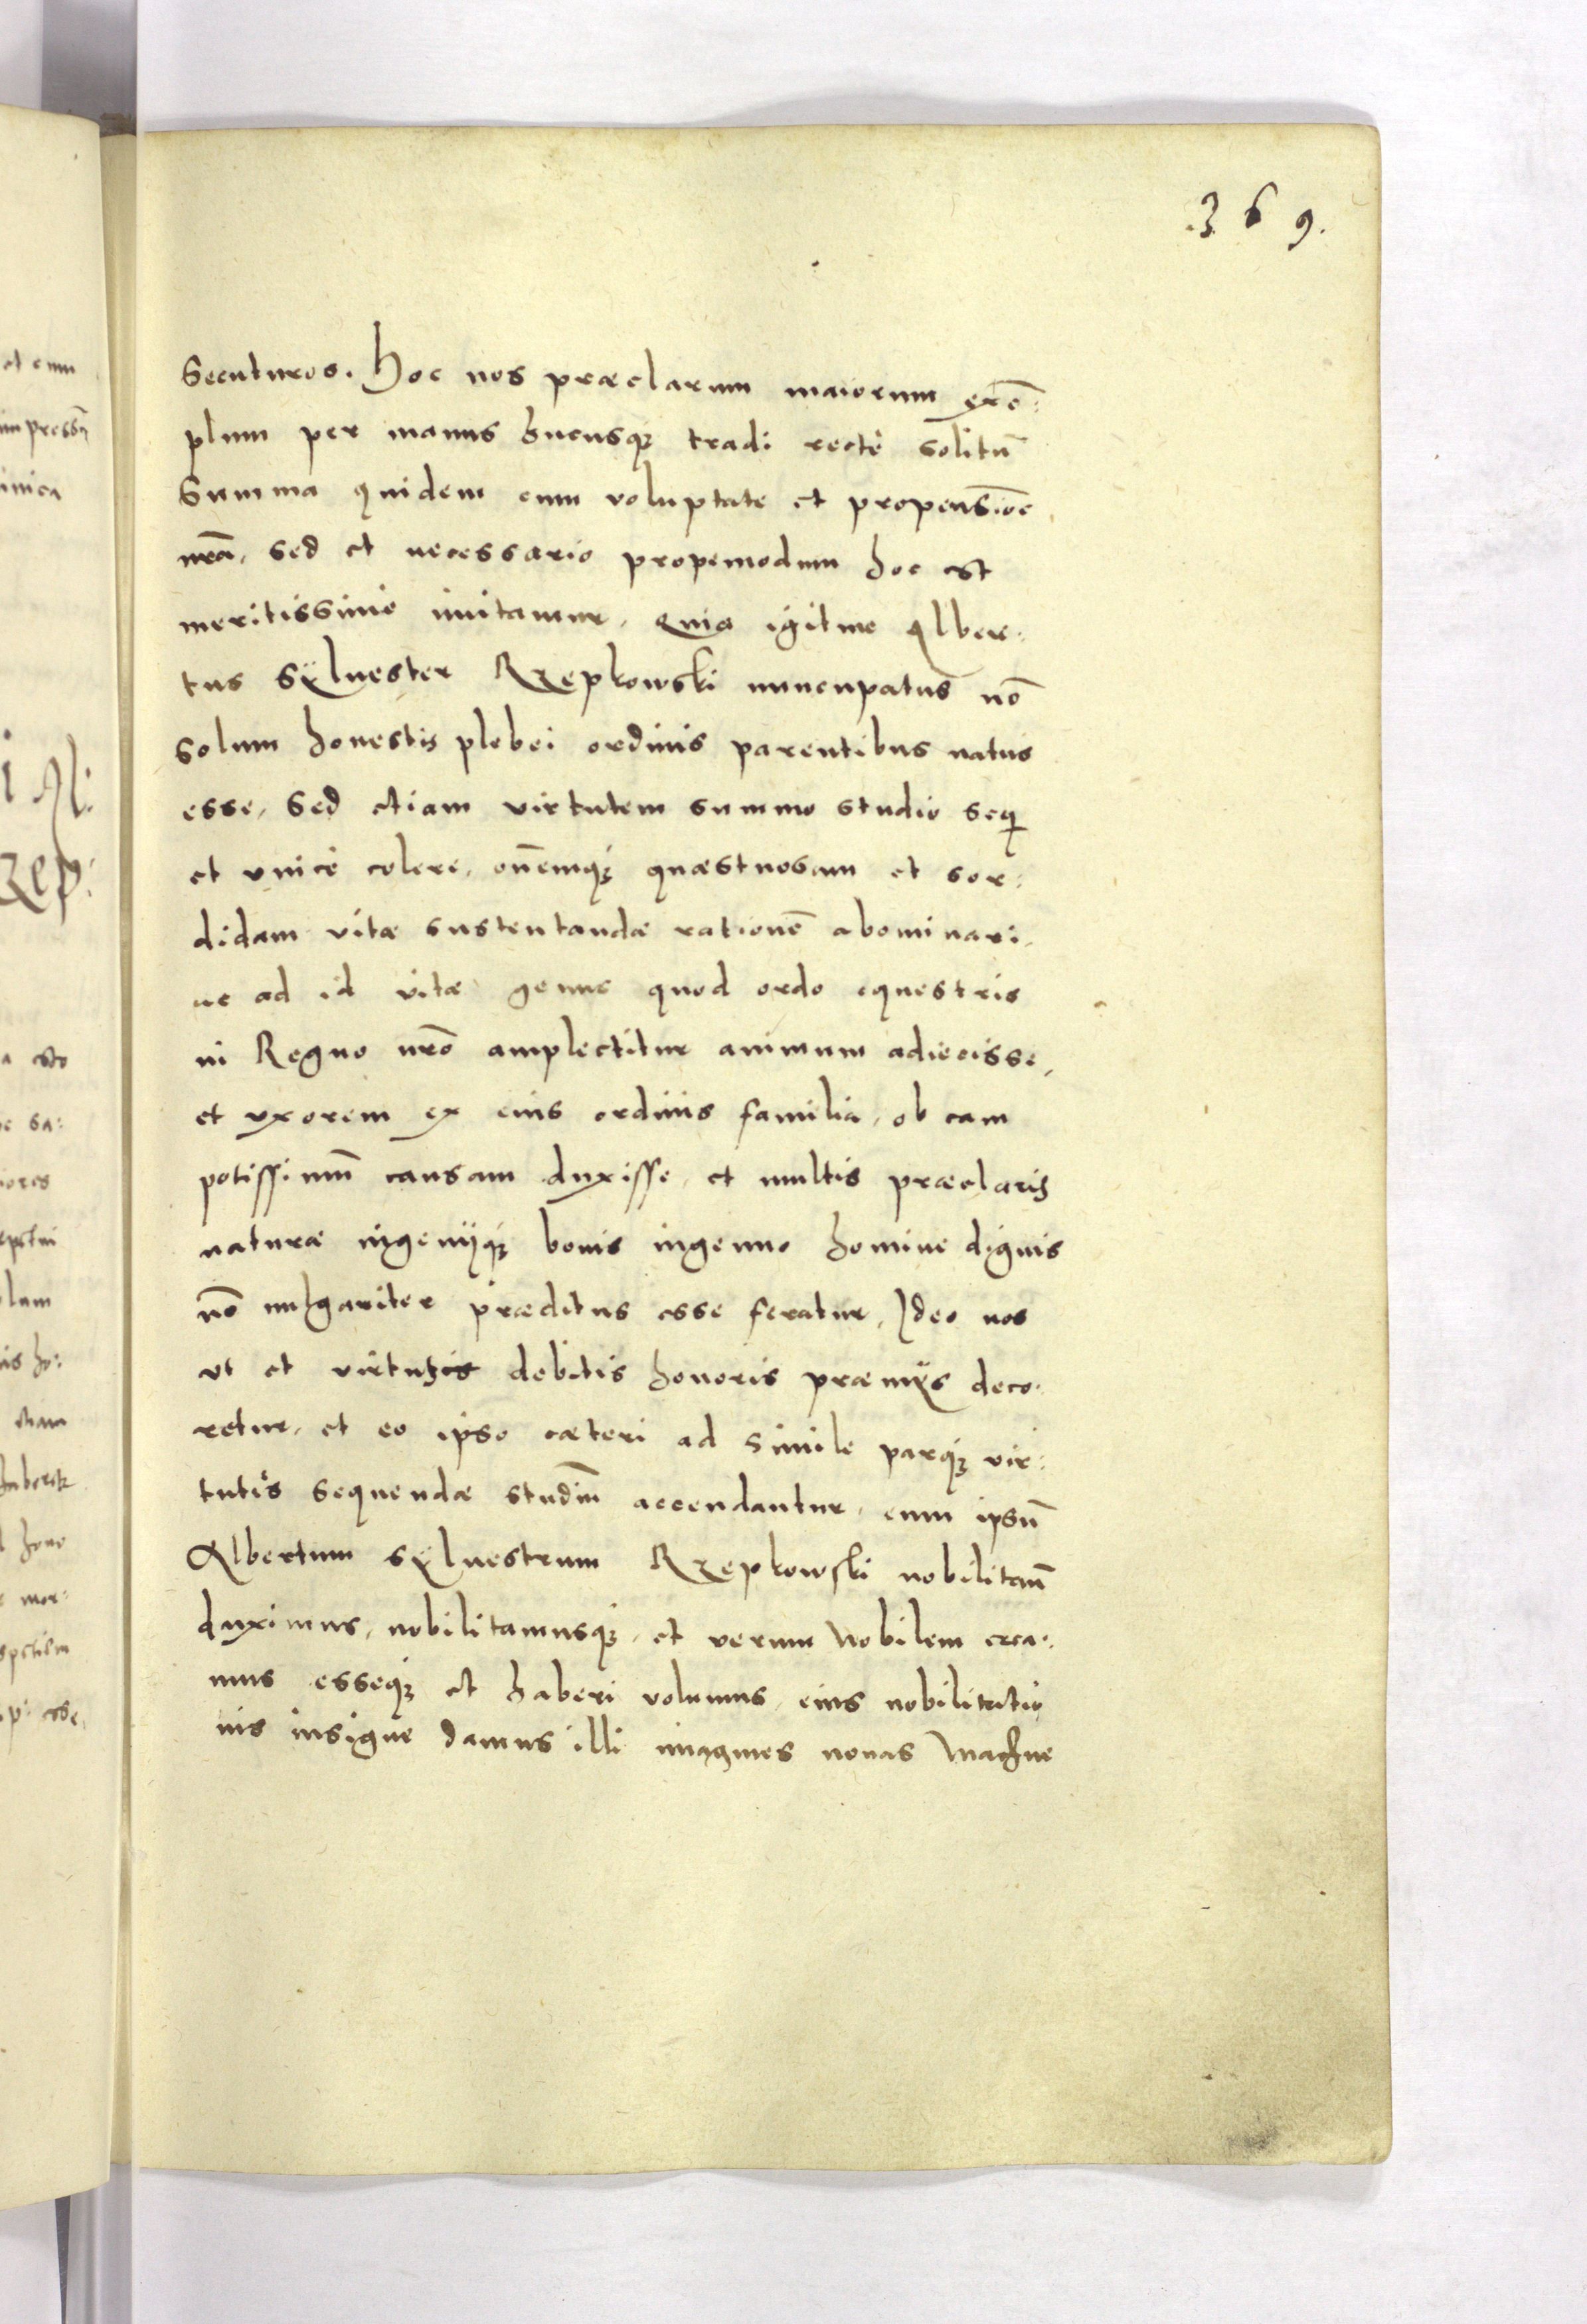 .3 6 9.
secuturos. Hoc nos præclarum maiorum exē:
plum per manus hucusq; tradi rectè solitū
Summa quidem cum voluptate et propensiōe
nrā, sed et necessario propemodum hoc est
meritissimo imitamur. Quia igitur Alber:
tus Sÿluester Rzepkowski nuncupatus nō
solum honestis plebei ordinis parentibus natus
esse, sed etiam virtutem summo studio seq
et vnicè colere, om̄emq; quæstuosam et sor:
didam vitæ sustentandæ rationē abominari,
ac ad id vitæ genus quod ordo equestris
in Regno nrō amplectitur animum adiecisse,
et vxorem ex eius ordinis familia, ob eam
potissimū causam duxisse, et multis præclaris
naturæ ingenijq; bonis ingenuo homine dignis
nō uulgariter præditus esse feratur, Ideo nos
vt et virtutis debitis honoris præmÿs deco:
retur, et eo ipso cæteri ad simile parq; vir:
tutis sequendæ studiū accendantur, eum ipsū
Albertum Sÿluestrum Rzepkowski nobilitan̄
duximus, nobilitamusq;, et verum Nobilem crea:
mus esseq; et haberi volumus, eius nobilitatio
nis insigne damus illi imagines nouas Machne
ct cum
impressū
inica
i Al:
zep:
a
e sa:
iores
eptui
lum
is ho:
etiam
d hono
e mor: